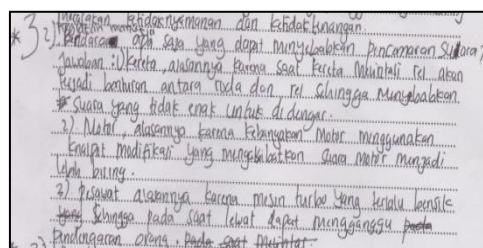 ketidaknyamanan dan ketidaktenangan.
* 3 2) Kendaraan apa saja yang dapat menyebabkan pencemaran suara?
Jawaban : 1) kereta, alasannya karena saat kereta melintasi rel akan
terjadi benturan antara roda dan rel sehingga menyebabkan
suara yang tidak enak untuk di dengar.
2) Motor, alasannya karena kebanyakan Motor menggunakan
knalpot modifikasi yang mengakibatkan suara motor menjadi
lebih bising.
3) Pesawat alasannya karena mesin turbo yang terlalu
sehingga pada saat lewat dapat mengganggu pada
pendengaran orang. pada saat